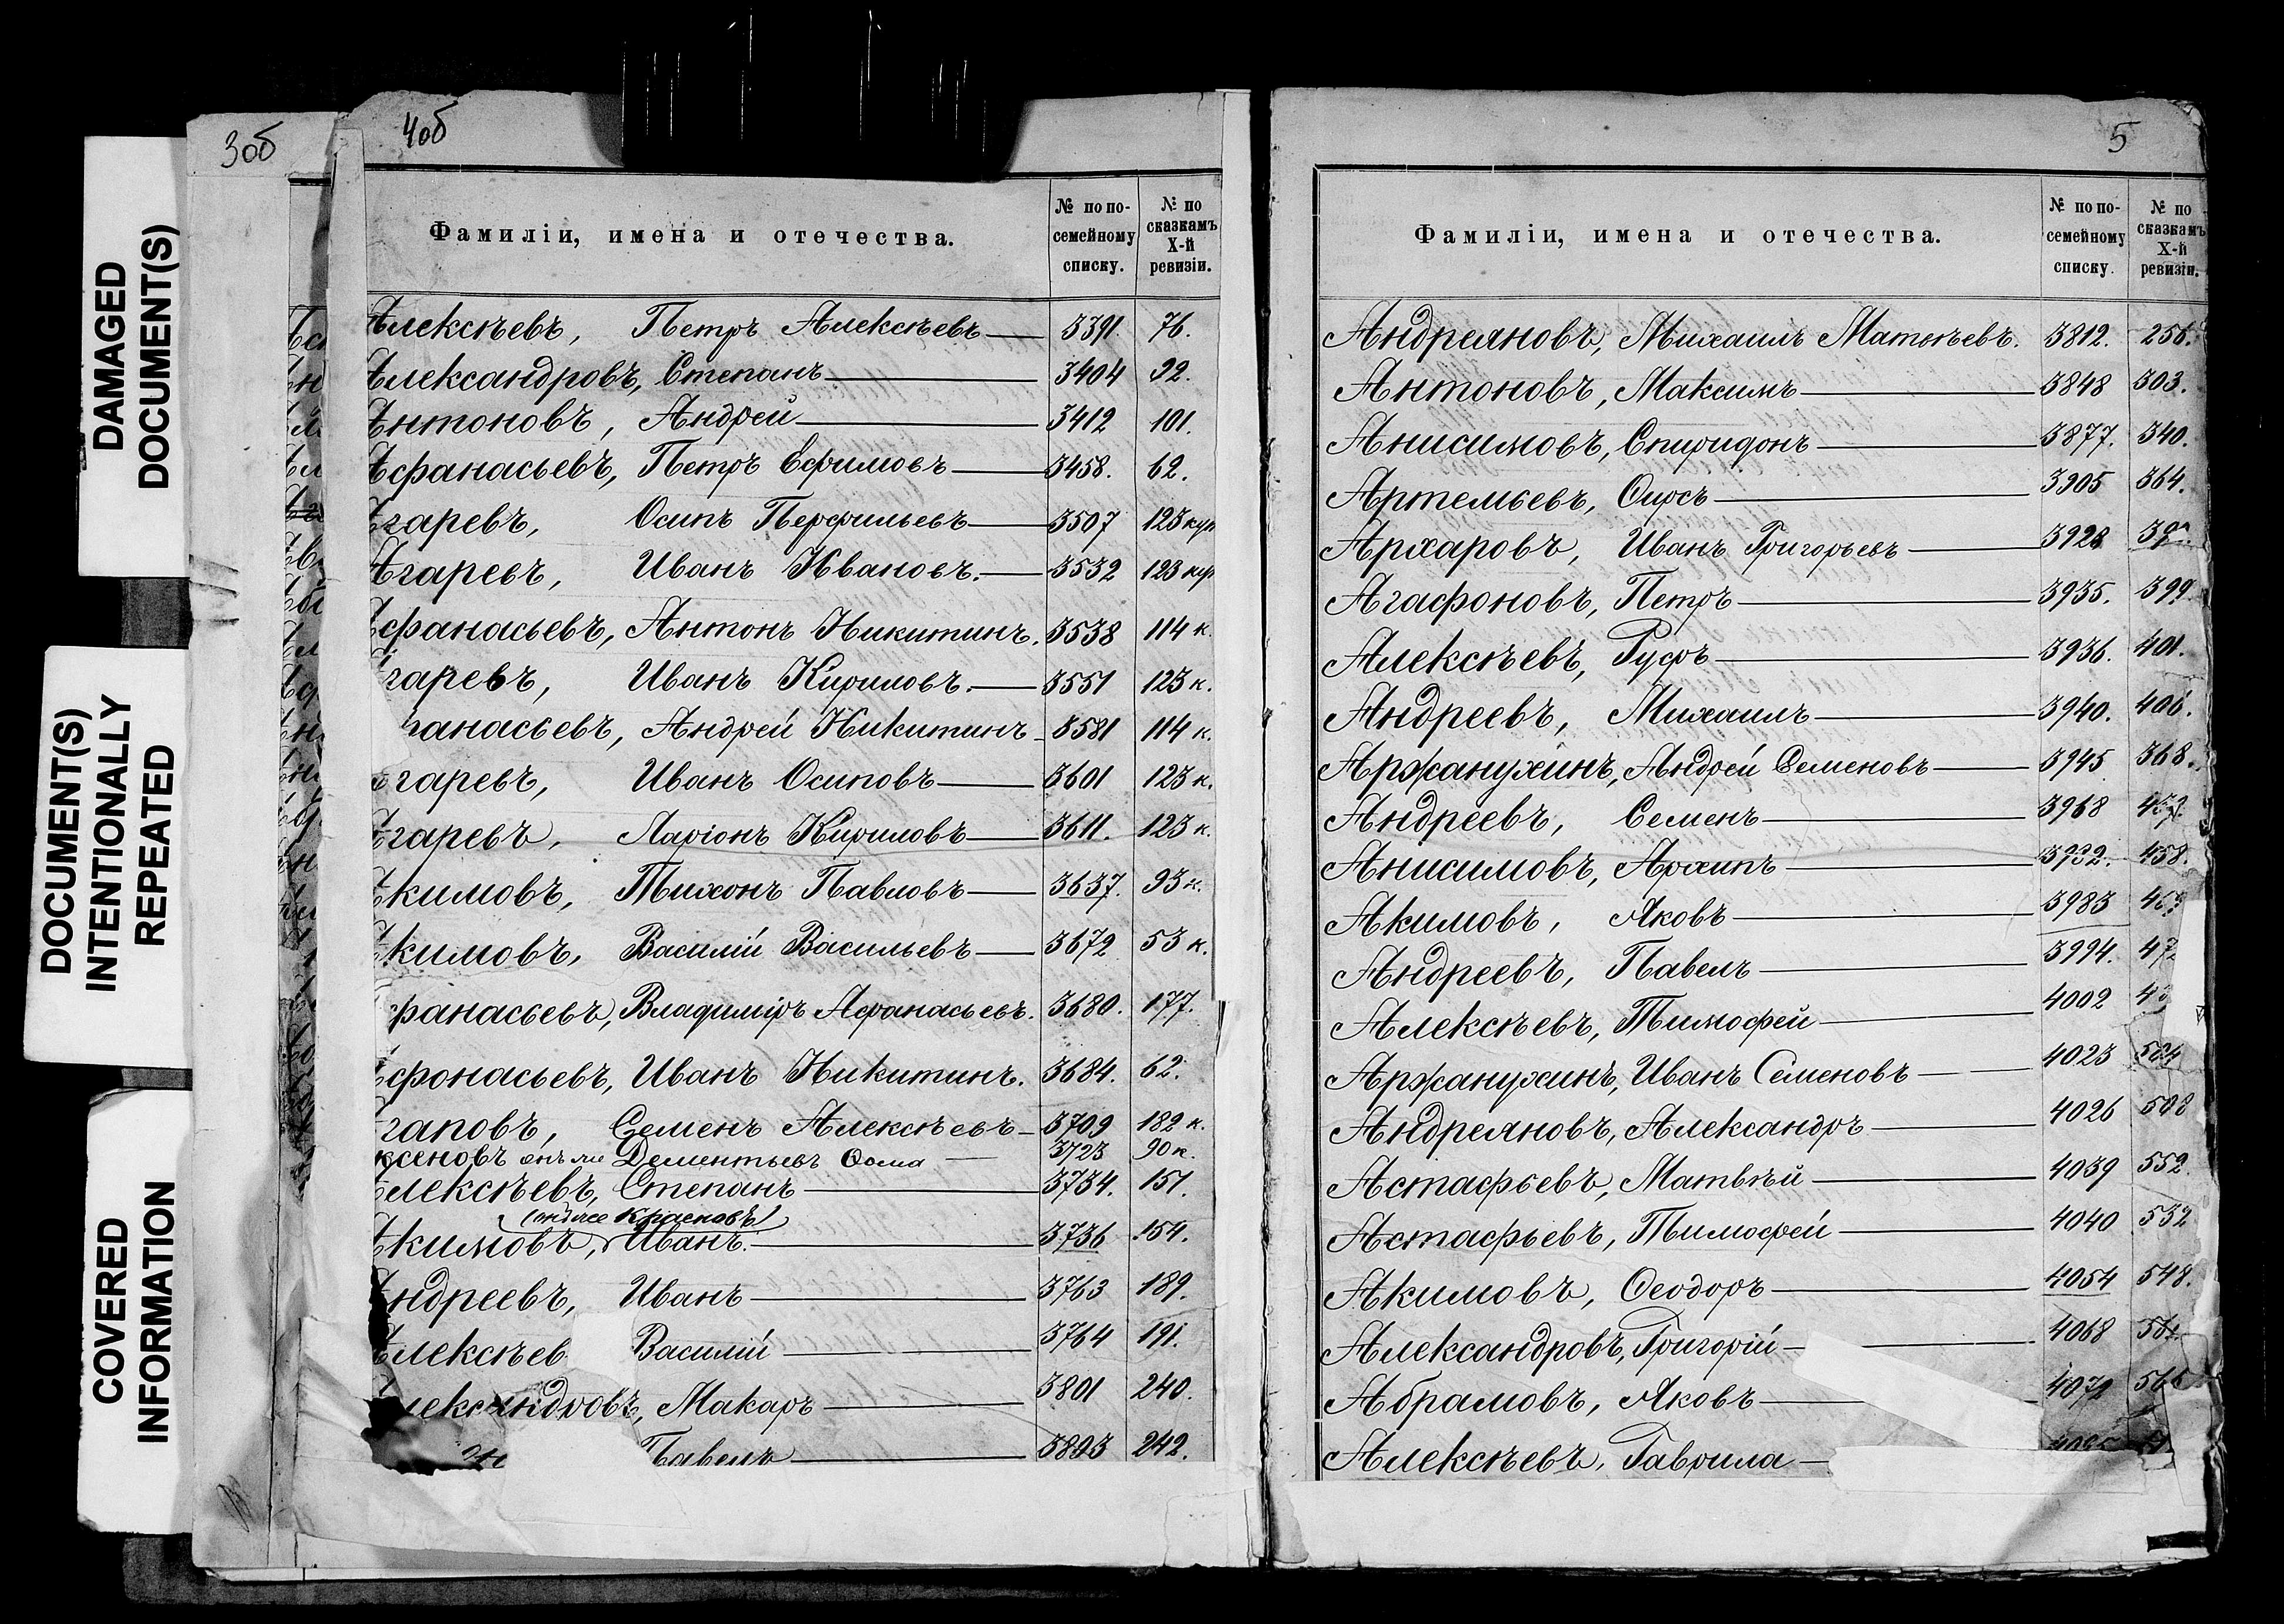 DAMAGED
DOCUMENT(S)
DOCUMENT(S)
INTENTIONALLY
REPEATED
COVERED
INFORMATION
3об
4об
Фамиліи, имена и отечества. № по посемейному списку. № по сказкамъ X-й ревизіи.
Алексѣевъ, Петръ Алексѣевъ 3391. 76.
Александровъ, Степанъ 3404 92.
Антоновъ, Андрей 3412 101.
Афанасьевъ, Петръ Ефимовъ 3458. 62.
Агаревъ, Осипъ Перфильевъ 3507 123 куп
Агаревъ, Иванъ Ивановъ. 3532 123 куп
Афанасьевъ, Антонъ Никитинъ. 3538 114 к.
гаревъ, Иванъ Кириловъ. 3551 123 к.
анасьевъ, Андрей Никитинъ 3581 114 к.
гаревъ, Иванъ Осиповъ 3601 123 к.
Агаревъ, Ларіонъ Кириловъ 3611. 123 к.
Акимовъ, Тихонъ Павловъ 3637. 93 к.
Акимовъ, Василій Васильевъ 3672 53 к.
фанасьевъ, Владиміръ Афанасьевъ. 3680. 177.
Афонасьевъ, Иванъ Никитинъ. 3684. 62.
гаповъ, Семенъ Алексѣевъ 3709 182 к.
ксеновъ онъ же Дементьевъ Фома 3723 90 к.
Алексѣевъ, Степанъ 3734. 151.
(онъ же Красновъ)
Акимовъ, Иванъ. 3736 154.
Андреевъ, Иванъ 3763 189.
Алексѣев Василій 3764 191.
Александровъ, Макаръ 3801 240.
Павелъ 3803 242.
5
Фамиліи, имена и отечества. № по посемейному списку. № по сказкамъ X-й ревизіи.
Андреяновъ, Михаилъ Матвѣевъ. 3812. 256.
Антоновъ, Максимъ 3848 303.
Анисимовъ, Спиридонъ 3877. 340.
Артемьевъ, Фирсъ 3905 364.
Архаровъ, Иванъ Григорьевъ 3928
Агафоновъ, Петръ 3935. 399.
Алексѣевъ, Руфъ 3936. 401.
Андреевъ, Михаилъ 3940. 406.
Аржанухинъ, Андрей Семеновъ 3945 368.
Андреевъ, Семенъ 3968
Анисимовъ, Архипъ 458.
Акимовъ, Яковъ 3983
Андреевъ, Павелъ 3994. 47
Алексѣевъ, Тимофей 4002
Аржанухинъ, Иванъ Семеновъ 4023
Андреяновъ, Александръ 4026 508
Астафьевъ, Матвѣй 4039 552.
Астафьевъ, Тимофей 4040 532
Акимовъ, Феодоръ 4054 548.
Александровъ, Григорій 4068
Абрамовъ, Яковъ
Алексѣевъ, Гаврила